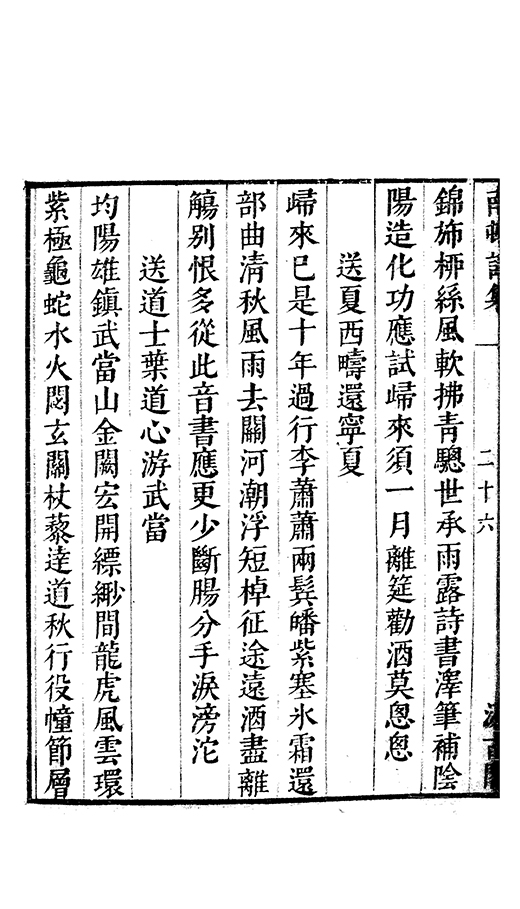 錦斾栁絲風軟拂青驄世承雨露詩書澤筆補陰
陽造化功應試歸來須一月離筵勸酒莫悤悤
送夏西疇還寧夏
歸來已是十年過行李蕭蕭兩鬂皤紫塞氷霜還
部曲清秋風雨去關河潮浮短棹征途遠酒盡離
觴别恨多從此音書應更少斷腸分手淚滂沱
送道士葉道心游武當
均陽雄鎮武當山金闕宏開縹緲間龍虎風雲環
紫極龜蛇水火閟玄關杖藜逹道秋行役幢節層
一 二十六